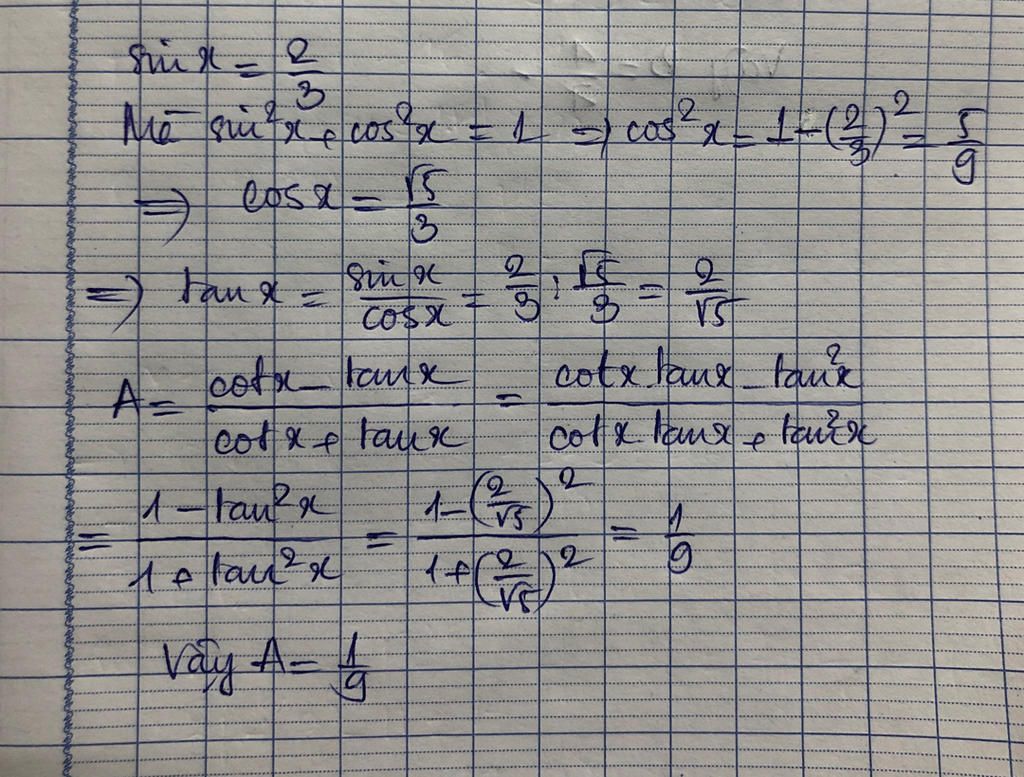 sin x = 2/3
Mà sin²x + cos²x = 1 => cos²x = 1 - (2/3)² = 5/9
=> cos x = √5/3
=> tan x = sin x/cos x = 2/3 : √5/3 = 2/√5
A = (cot x - tan x)/(cot x + tan x) = (cot x tan x - tan²x)/(cot x tan x + tan²x)
= (1 - tan²x)/(1 + tan²x) = (1 - (2/√5)²)/(1 + (2/√5)²) = 1/9
Vậy A = 1/9